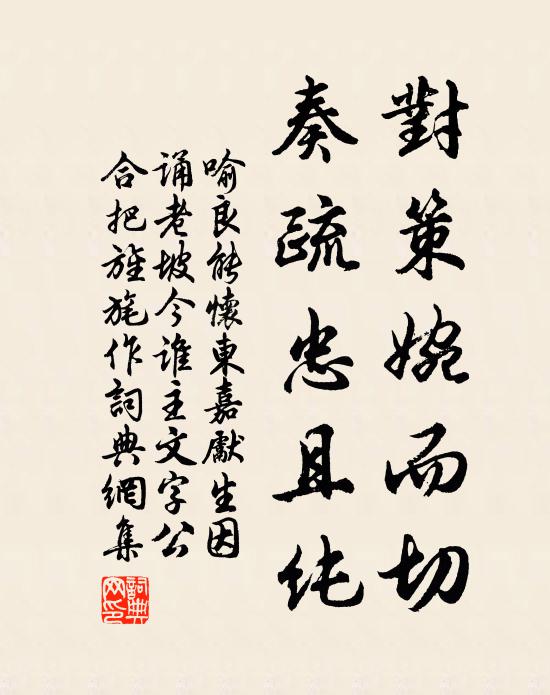 對策婉而切
奏疏忠且純
喻良能懷東嘉獻生因
誦老坡今誰主文字公
合把旌旄作詞典網集
詞典網印